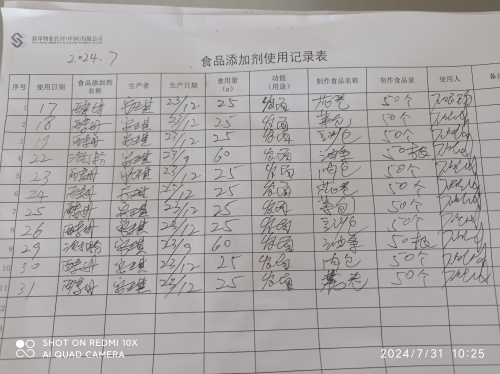 2024.7
食品添加剂使用记录表
序号 使用日期 食品添加剂名称 生产者 生产日期 食用量(g) 功能(用途) 制作食品名称 制作食品量 使用人 备
1 17 酵母 安琪 23/12 25 发面 花卷 50个
2 18 酵母 安琪 23/12 25 发面 菜包 50个
3 19 酵母 安琪 23/12 25 发面 50个
4 22 安琪 23/9 60 发面 油条 50根
5 23 酵母 安琪 23/12 25 发面 肉包 50个
6 24 酵母 安琪 23/12 25 发面 花卷 50个
7 25 酵母 安琪 23/12 25 发面 菜包 50个
8 26 酵母 安琪 23/12 25 发面 50个
9 29 安琪 23/9 60 发面 油条 50根
10 30 酵母 安琪 23/12 25 发面 肉包 50个
11 31 酵母 安琪 23/12 25 发面 50个
SHOT ON REDMI 10X
AI QUAD CAMERA
2024/7/31 10:25